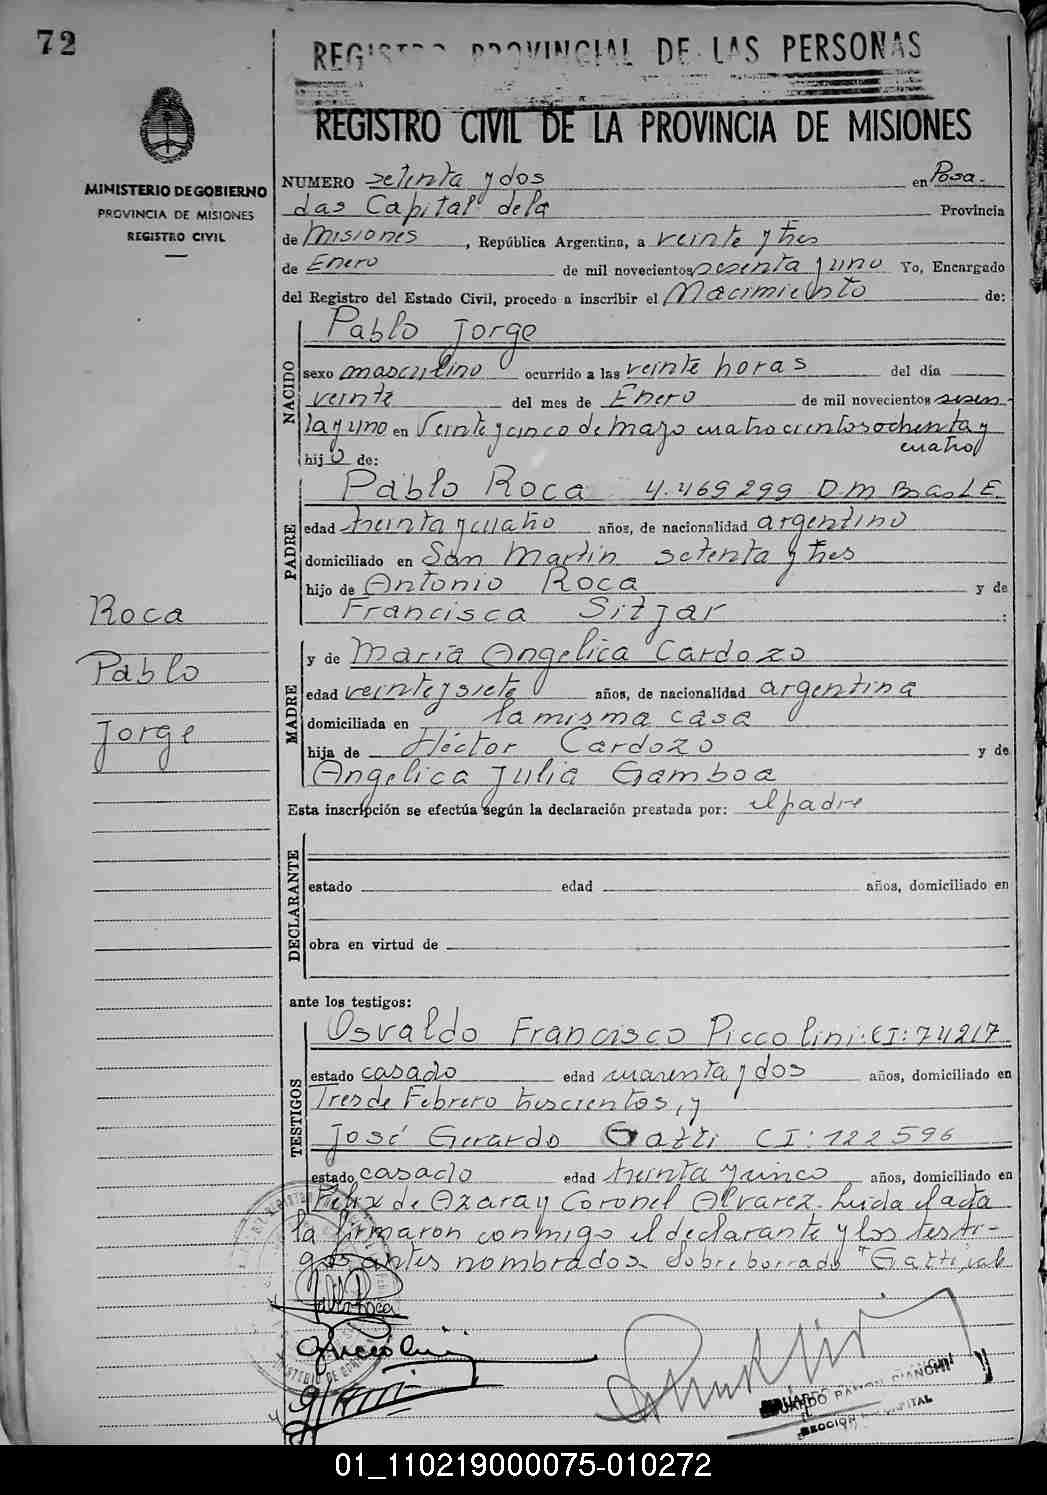 72
REGISTRO PROVINCIAL DE LAS PERSONAS
REGISTRO CIVIL DE LA PROVINCIA DE MISIONES
MINISTERIO DE GOBIERNO
PROVINCIA DE MISIONES
REGISTRO CIVIL
NUMERO setenta y dos en Posa-
das Capital de la Provincia
de Misiones, República Argentina, a veinte y tres
de Enero de mil novecientos sesenta y uno Yo, Encargado
del Registro del Estado Civil, procedo a inscribir el Nacimiento de:
NACIDO
Pablo Jorge
sexo masculino ocurrido a las veinte horas del día
veinte del mes de Enero de mil novecientos sesen-
ta y uno en Veinte y cinco de mayo cuatrocientos ochenta y
cuatro
hijo de:
PADRE
Pablo Roca 4.469.299 D.M. Bs as L.E.
edad treinta y cuatro años, de nacionalidad argentino
domiciliado en San Martin setenta y tres
hijo de Antonio Roca y de
Francisca Sitjar :
Roca
Pablo
Jorge
MADRE
y de María Angelica Cardozo
edad veinte y siete años, de nacionalidad argentina
domiciliada en la misma casa
hija de Héctor Cardozo y de
Angelica Julia Gamboa
Esta inscripción se efectúa según la declaración prestada por: el padre
DECLARANTE
estado edad años, domiciliado en
obra en virtud de
ante los testigos:
TESTIGOS
Osvaldo Francisco Piccolini: CI: 74217
estado casado edad cuarenta y dos años, domiciliado en
Tres de Febrero trescientos, y
José Gerardo Gatti CI: 122596
estado casado edad treinta y cinco años, domiciliado en
Felix de Azara y Coronel Alvarez. Leida el acta
la firmaron conmigo el declarante y los testi-
gos antes nombrados. Sobre borrado "Gatti" vale
EDUARDO RAMON BIANCHI
SECCION CAPITAL
01_110219000075-010272